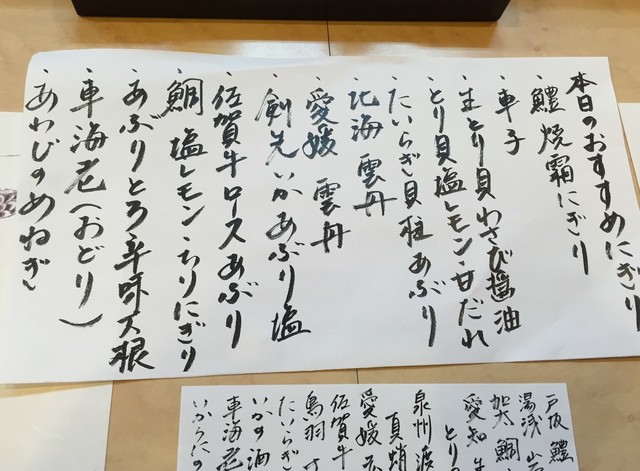 本日のおすすめにぎり
・鱧焼霜にぎり
・車子
・生とり貝わさび醤油
・とり貝塩レモン・甘だれ
・たいらぎ貝柱あぶり
・北海雲丹
・愛媛雲丹
・剣先いかあぶり塩
・佐賀牛ロースあぶり
・鯛塩レモン・ちりにぎり
・あぶりとろ辛味大根
・車海老(おどり)
・あわじのめねぎ
戸坂鱧
湯浅
加太鯛
愛知
とり
泉州渡
真蛸
愛媛
佐賀牛
鳥羽
たいらぎ
いかの酒
車海老
いからにの